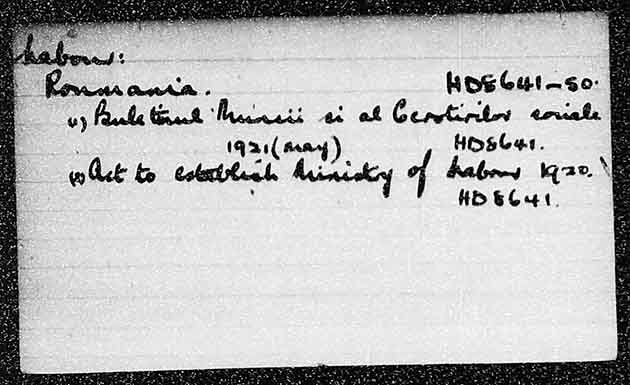 Labour:
Roumania. HD8641-50.
(1) Buletinul Muncii si al Cerotirilor sociale
1921 (May) HD8641.
(2) Act to establish Ministry of Labour 1920.
HD8641.